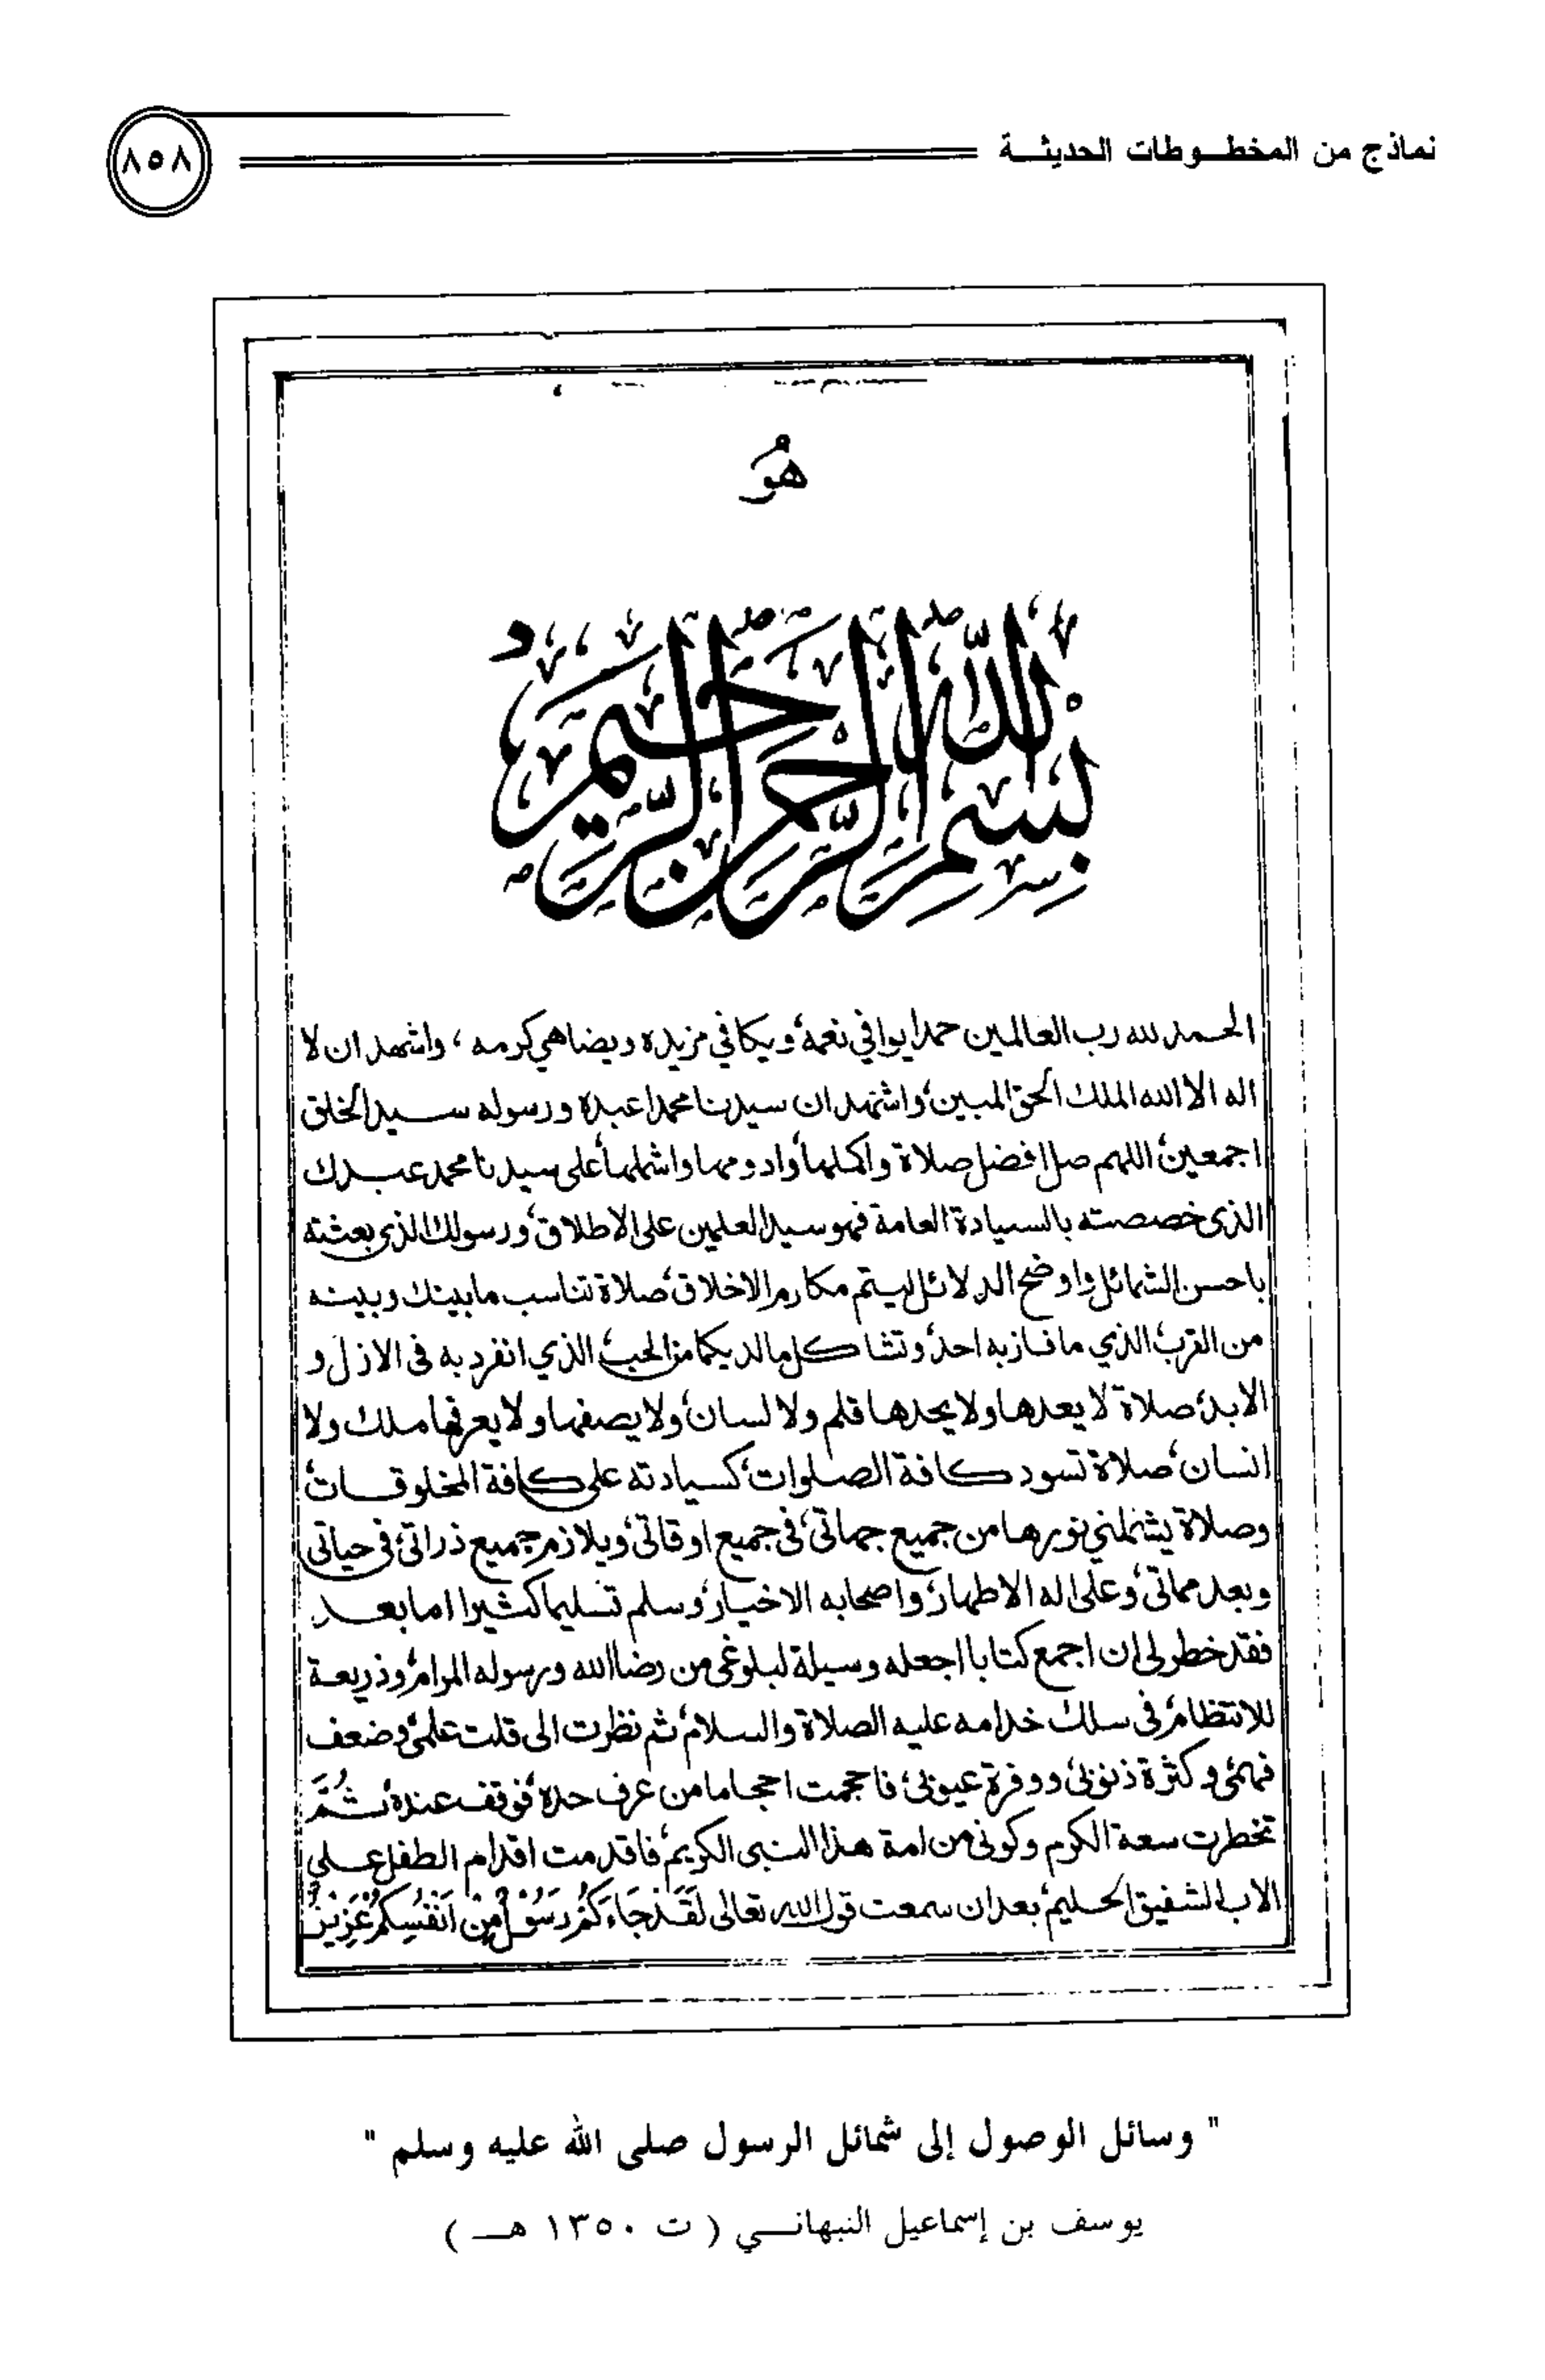 نماذج من المخطوطات الحديثة
٨٥٨
هُوَ
بسم الله الرحمن الرحيم
الحمد لله رب العالمين حمدا يوافي نعمه، ويكافي مزيده ويضاهي كرمه، واشهد ان لا
اله الا الله الملك الحق المبين، واشهد ان سيدنا محمدا عبده ورسوله سيد الخلق
اجمعين، اللهم صل افضل صلاة واكملها، وادومها واشملها، على سيدنا محمد عبدك
الذي خصصته بالسيادة العامة فهو سيد العلمين على الاطلاق، ورسولك الذي بعثته
باحسن الشمائل واوضح الدلائل ليتم مكارم الاخلاق، صلاة تناسب ما بينك وبينه
من القرب، الذي ما فاز به احد، وتشاكل ما لديكما من الحب، الذي انفرد به فى الازل و
الابد، صلاة لا يعدها ولا يحدها قلم ولا لسان، ولا يصفها ولا يعرفها ملك ولا
انسان، صلاة تسود كافة الصلوات، كسيادته على كافة المخلوقات،
وصلاة يشملني نورها من جميع جهاتى، فى جميع اوقاتى، ويلازم جميع ذراتى، فى حياتى
وبعد مماتى، وعلى اله الاطهار، واصحابه الاخيار، وسلم تسليما كثيرا اما بعد
فقد خطر لى ان اجمع كتابا اجعله وسيلة لبلوغى من رضا الله ورسوله المرام، وذريعة
للانتظام، فى سلك خدامه عليه الصلاة والسلام، ثم نظرت الى قلت علمى، وضعف
فهمى، وكثرة ذنوبى، ووفرة عيوبى، فاحجمت احجاما من عرف حده، فوقف عنده، ثُمَّ
تخطرت سعة الكرم وكونى من امة هذا النبى الكريم، فاقدمت اقدام الطفل على
الاب الشفيق الحليم، بعد ان سمعت قول الله تعالى لَقَدْ جَاءَكُمْ رَسُوْلٌ مِنْ اَنْفُسِكُمْ عَزِيْزٌ
" وسائل الوصول إلى شمائل الرسول صلى الله عليه وسلم "
يوسف بن إسماعيل النبهاني ( ت ١٣٥٠ هـ )